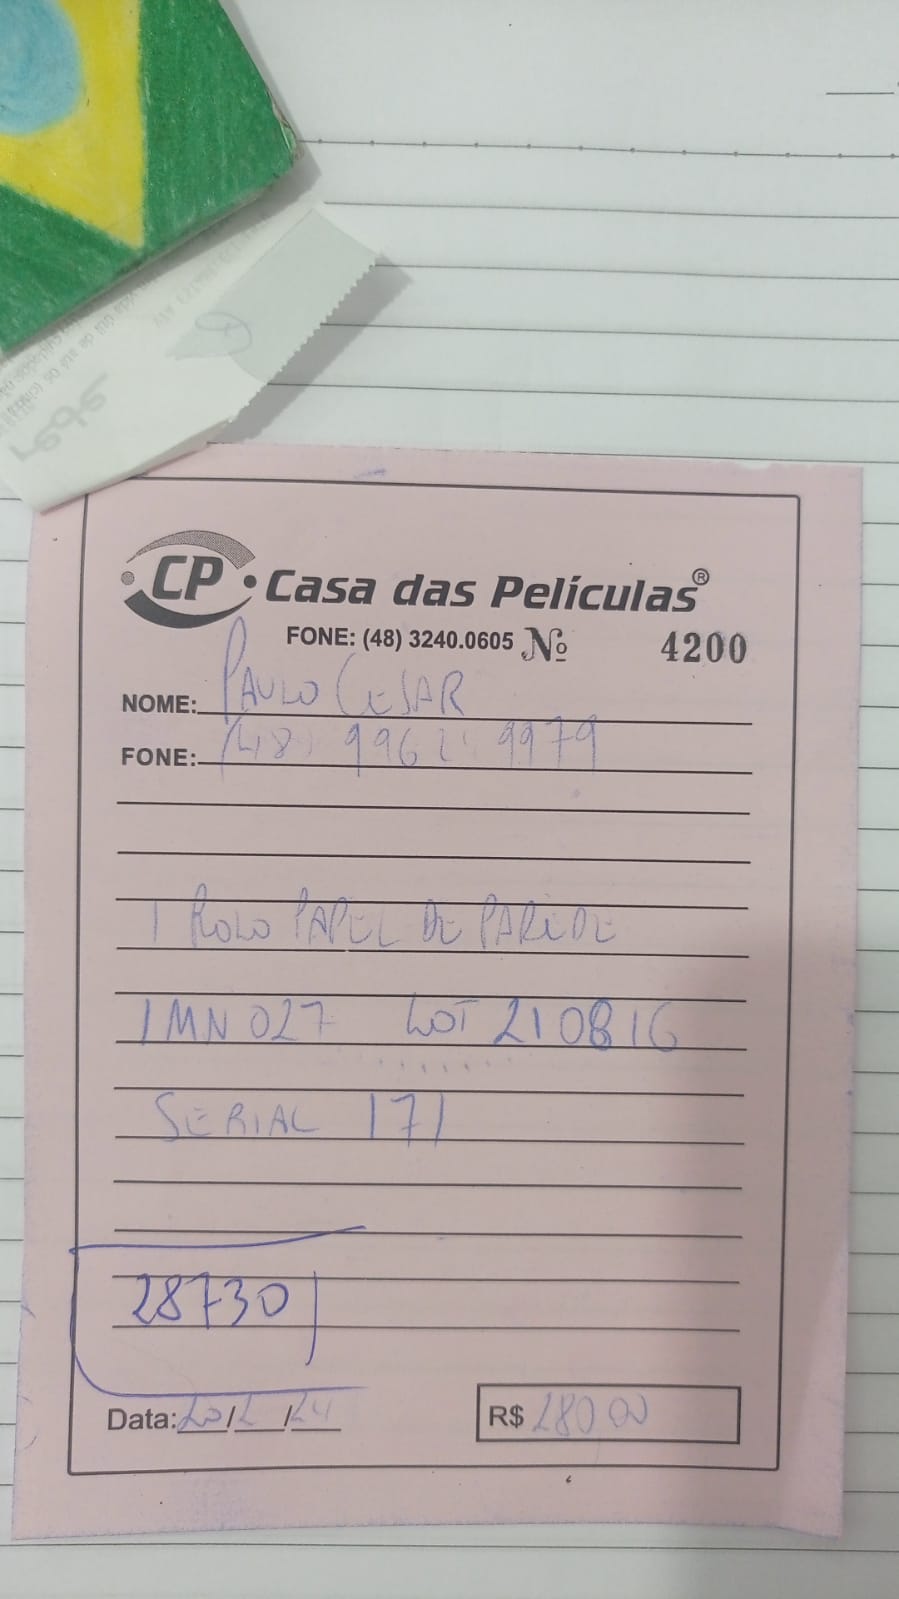 rede
CP Casa das Películas®
FONE: (48) 3240.0605 Nº 4200
NOME: PAULO CESAR
FONE: (48) 9962 9979
1 ROLO PAPEL DE PAREDE
1MN027 LOT 210816
SERIAL 171
28730
Data: 20/2/24 R$ 280 00